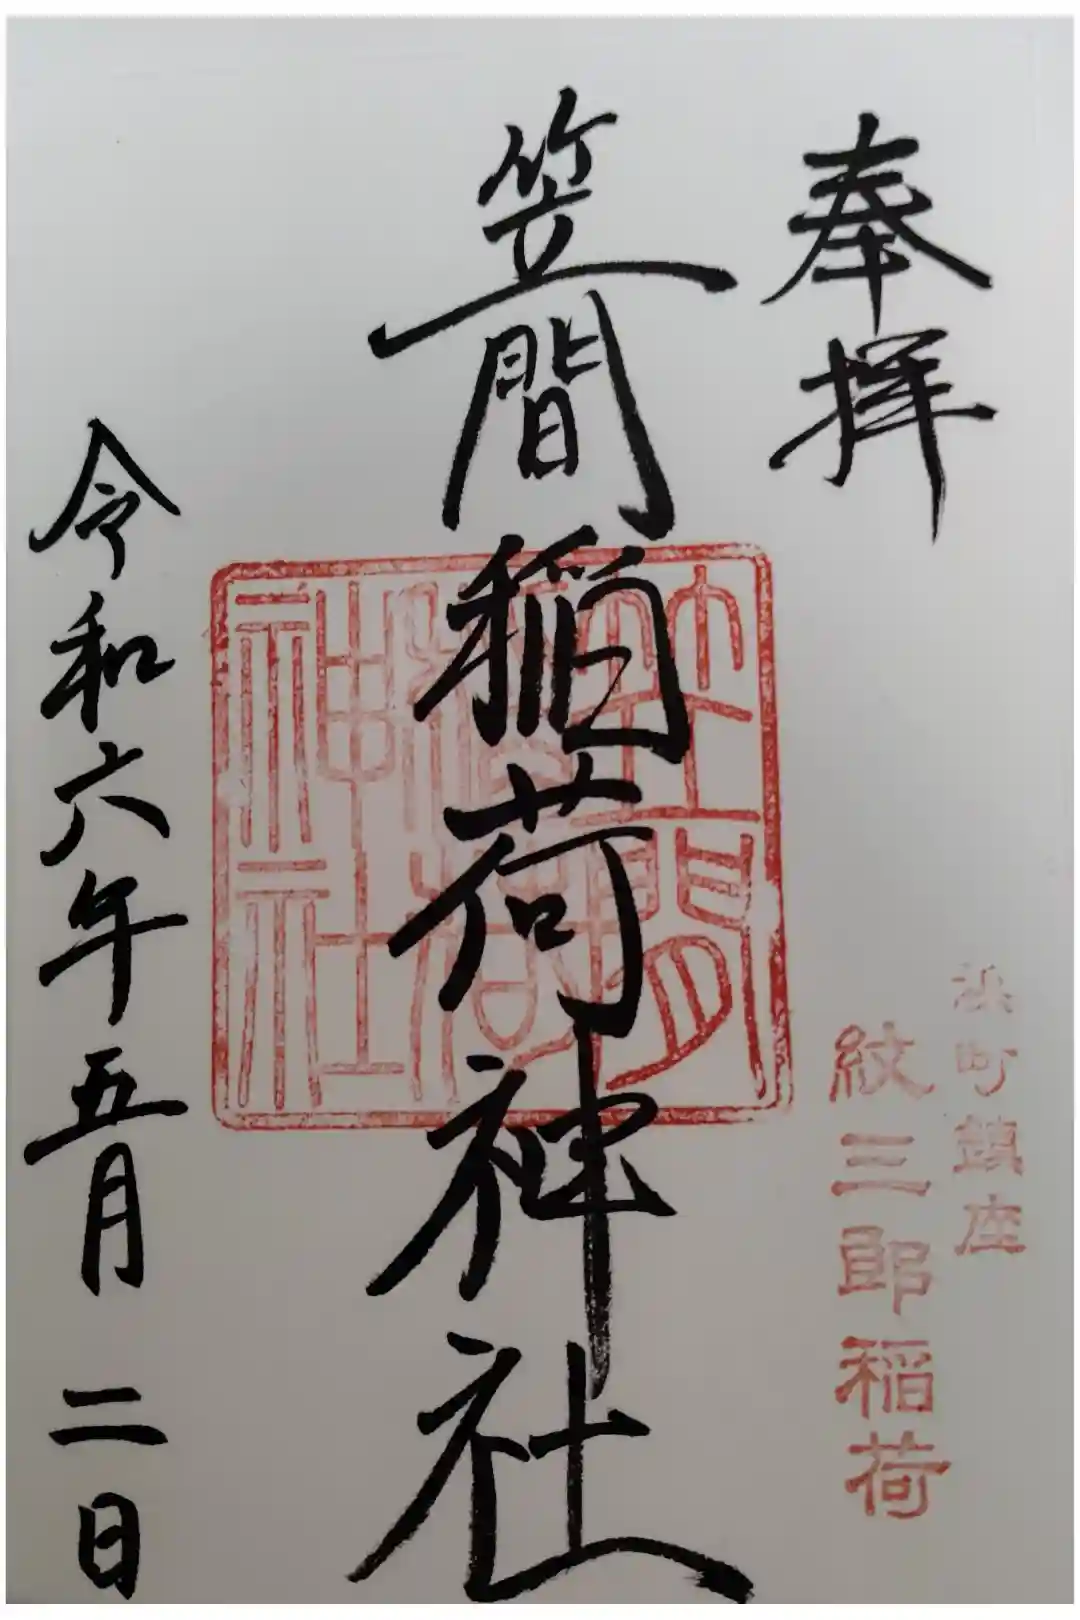 奉拝
浜町鎮座
紋三郎稲荷
笠間稲荷神社
笠間
稲荷
神社
令和六年五月二日